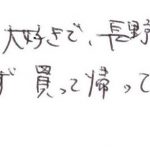 大好きで、長野
買って帰って